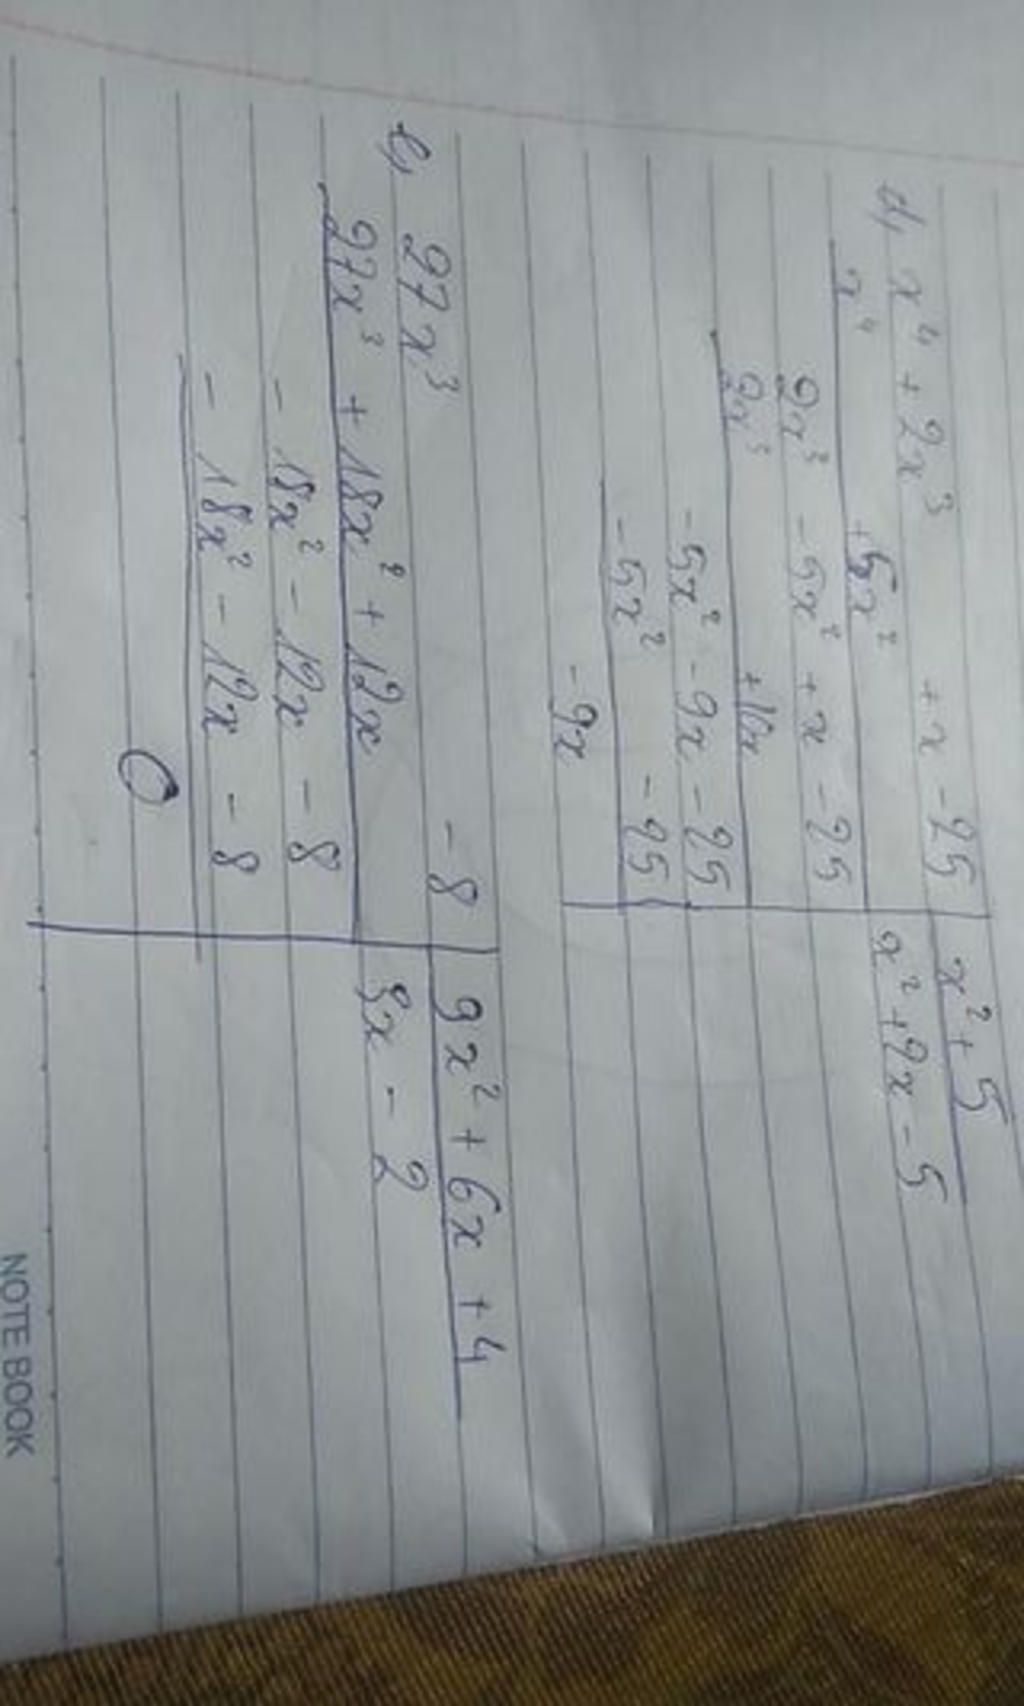 d, x⁴ + 2x³ + x - 25 | x² + 5
x⁴ + 5x² | x² + 2x - 5
2x³ - 5x² + x - 25
2x³ + 10x
- 5x² - 9x - 25
- 5x² - 25
- 9x
e, 27x³ - 8 | 9x² + 6x + 4
27x³ + 18x² + 12x | 3x - 2
- 18x² - 12x - 8
- 18x² - 12x - 8
0
NOTE BOOK